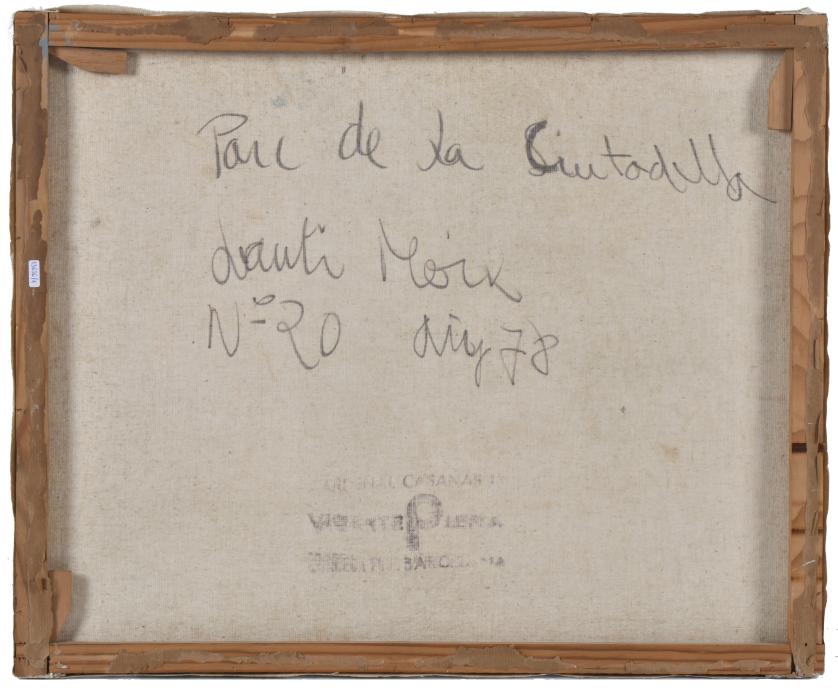 Parc de la Ciutadella
Santi Moix
Nº 20 Any 78
CARDENAL CASAÑAS
VICENTE PIERA
BARCELONA